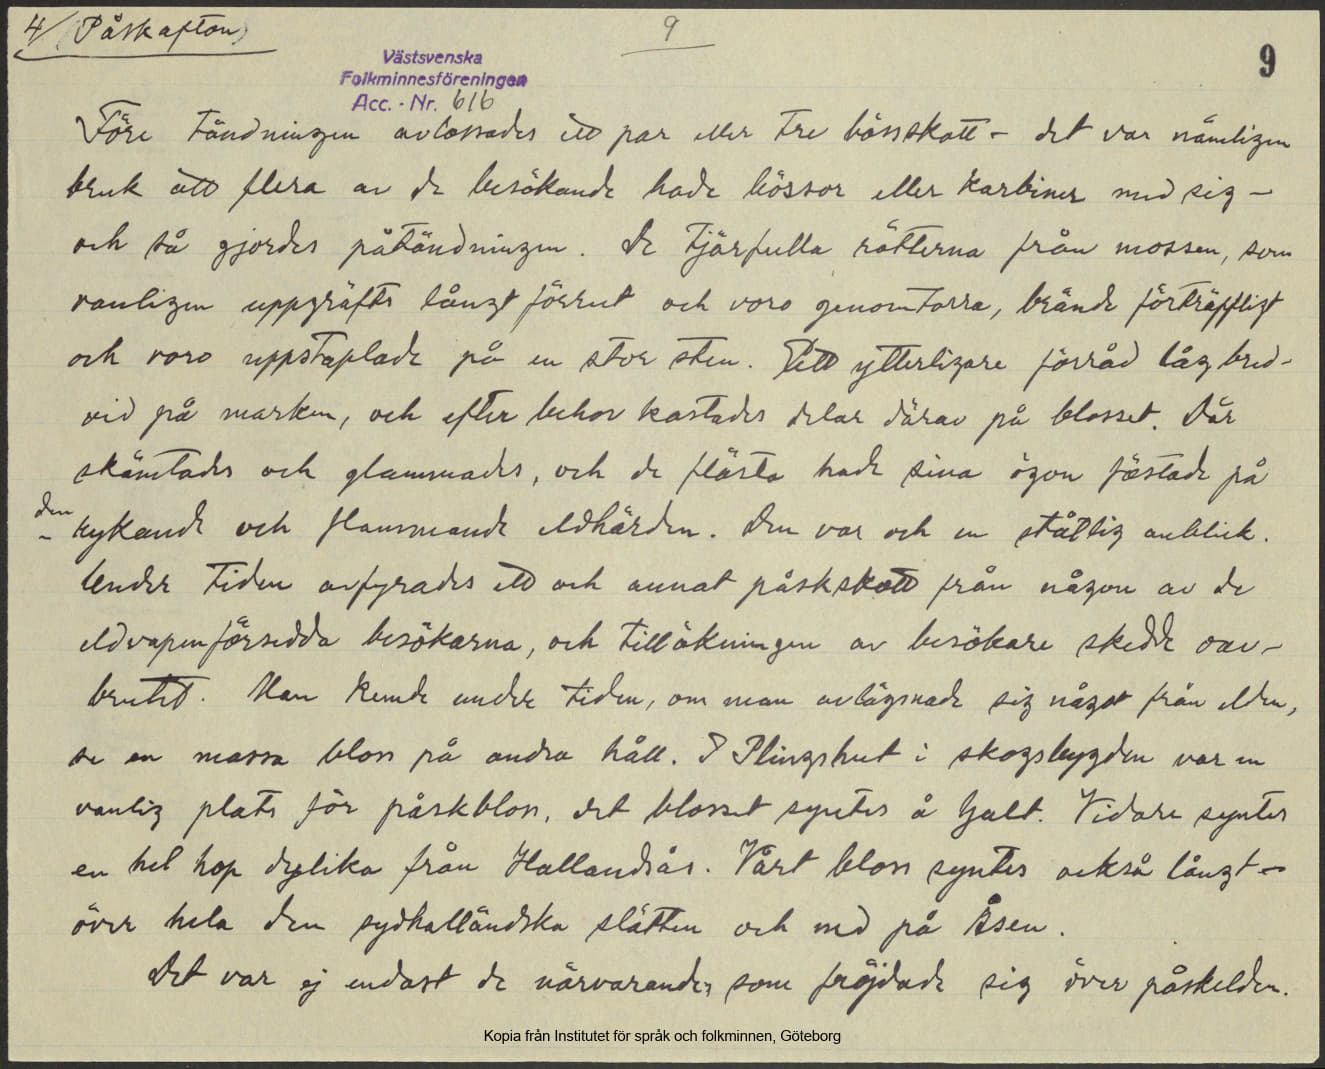 4/ (Påskafton)
9
9
Västsvenska
Folkminnesföreningen
Acc. - Nr. 616
Före tändningen avlossades ett par eller tre bösskott – det var nämligen
bruk att flera av de besökande hade bössor eller karbiner med sig –
och så gjordes påtändningen. De tjärfulla rötterna från mossen, som
vanligen uppgräfts långt förut och voro genomtorra, brände förträffligt
och voro uppstaplade på en stor sten. Ett ytterligare förråd låg bred-
vid på marken, och efter behov kastades delar därav på blosset. Där
skämtades och glammades, och de flästa hade sina ögon fästade på
den
– rykande och flammande eldhärden. Den var och en ståtlig anblick.
Under tiden avfyrades ett och annat påskskott från någon av de
eldvapenförsedda besökarna, och tillökningen av besökare skedde oav-
brutet. Man kunde under tiden, om man avlägsnade sig något från elden,
se en massa bloss på andra håll. I Plingshut i skogsbygden var en
vanlig plats för påskbloss, det blosset syntes å Galt. Vidare syntes
en hel hop dylika från Hallandsås. Vårt bloss syntes också långt –
över hela den sydhalländska slätten och ned på Åsen.
Det var ej endast de närvarande, som fröjdade sig över påskelden.
Kopia från Institutet för språk och folkminnen, Göteborg